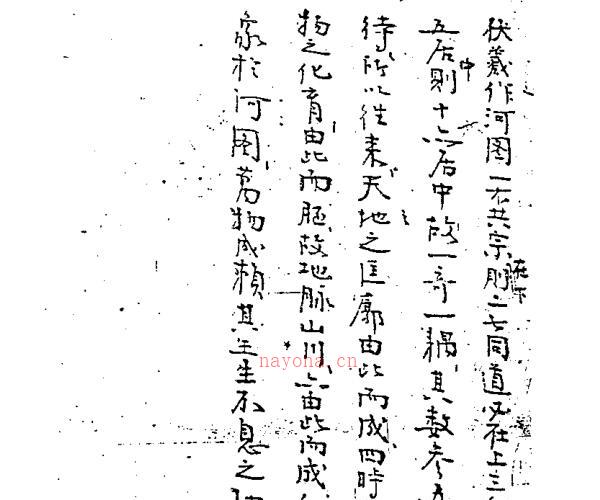 伏羲作河图一六共宗则二七同道必在上三
五居则十六居中故一奇一耦其数参五
待所以往来天地之匡廓由此而成四時
物之化育由此而胚故地脉山川亦由此而成
象於河图萬物咸賴其生生不息之
在下
中
nayona.cn